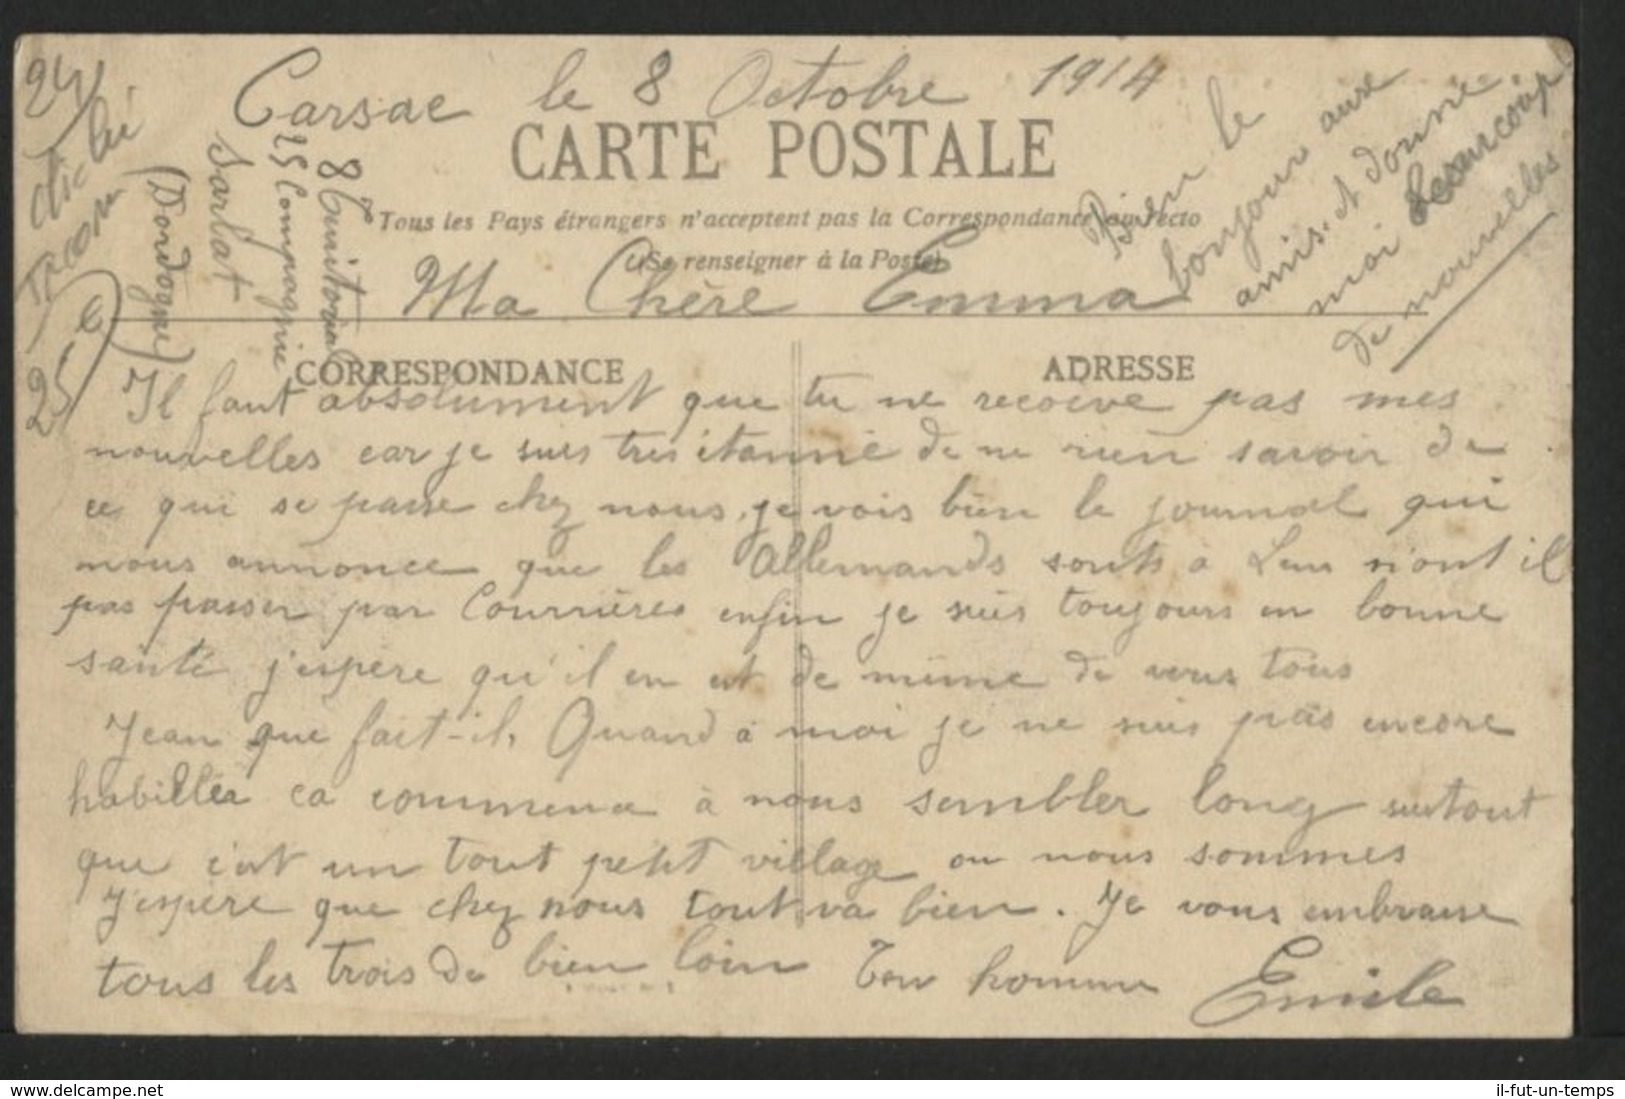 Carsac le 8 Octobre 1914
CARTE POSTALE
Tous les Pays étrangers n'acceptent pas la Correspondance au recto
(Se renseigner à la Poste)
Ma Chère Emma
CORRESPONDANCE
ADRESSE
Il faut absolument que tu ne recoive pas mes
nouvelles car je suis tres étonné de ne rien savoir de
ce qui se passe chez nous, je vois bien le journal qui
nous annonce que les Allemands sonts a Lens n'ont il
pas passer par Courrières enfin je suis toujours en bonne
santé j'espère qu'il en est de même de vous tous
Jean que fait-il, Quand à moi je ne suis pas encore
habillér ca commence à nous sembler long surtout
que c'est un tout petit village ou nous sommes
J'espère que chez nous tout va bien. Je vous embrasse
tous les trois de bien loin Ton homme Emile
8e Territorial
25 Compagnie
Sarlat
(Dordogne)
Bien le
bonjour aux
amis. et donne
moi Beaucoup
de nouvelles
24
25
delcampe.net
il-fut-un-temps